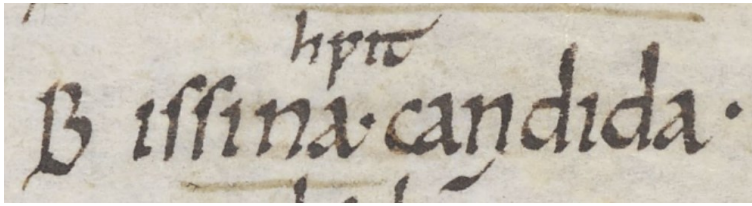 hƿit
Biſſina·candida·